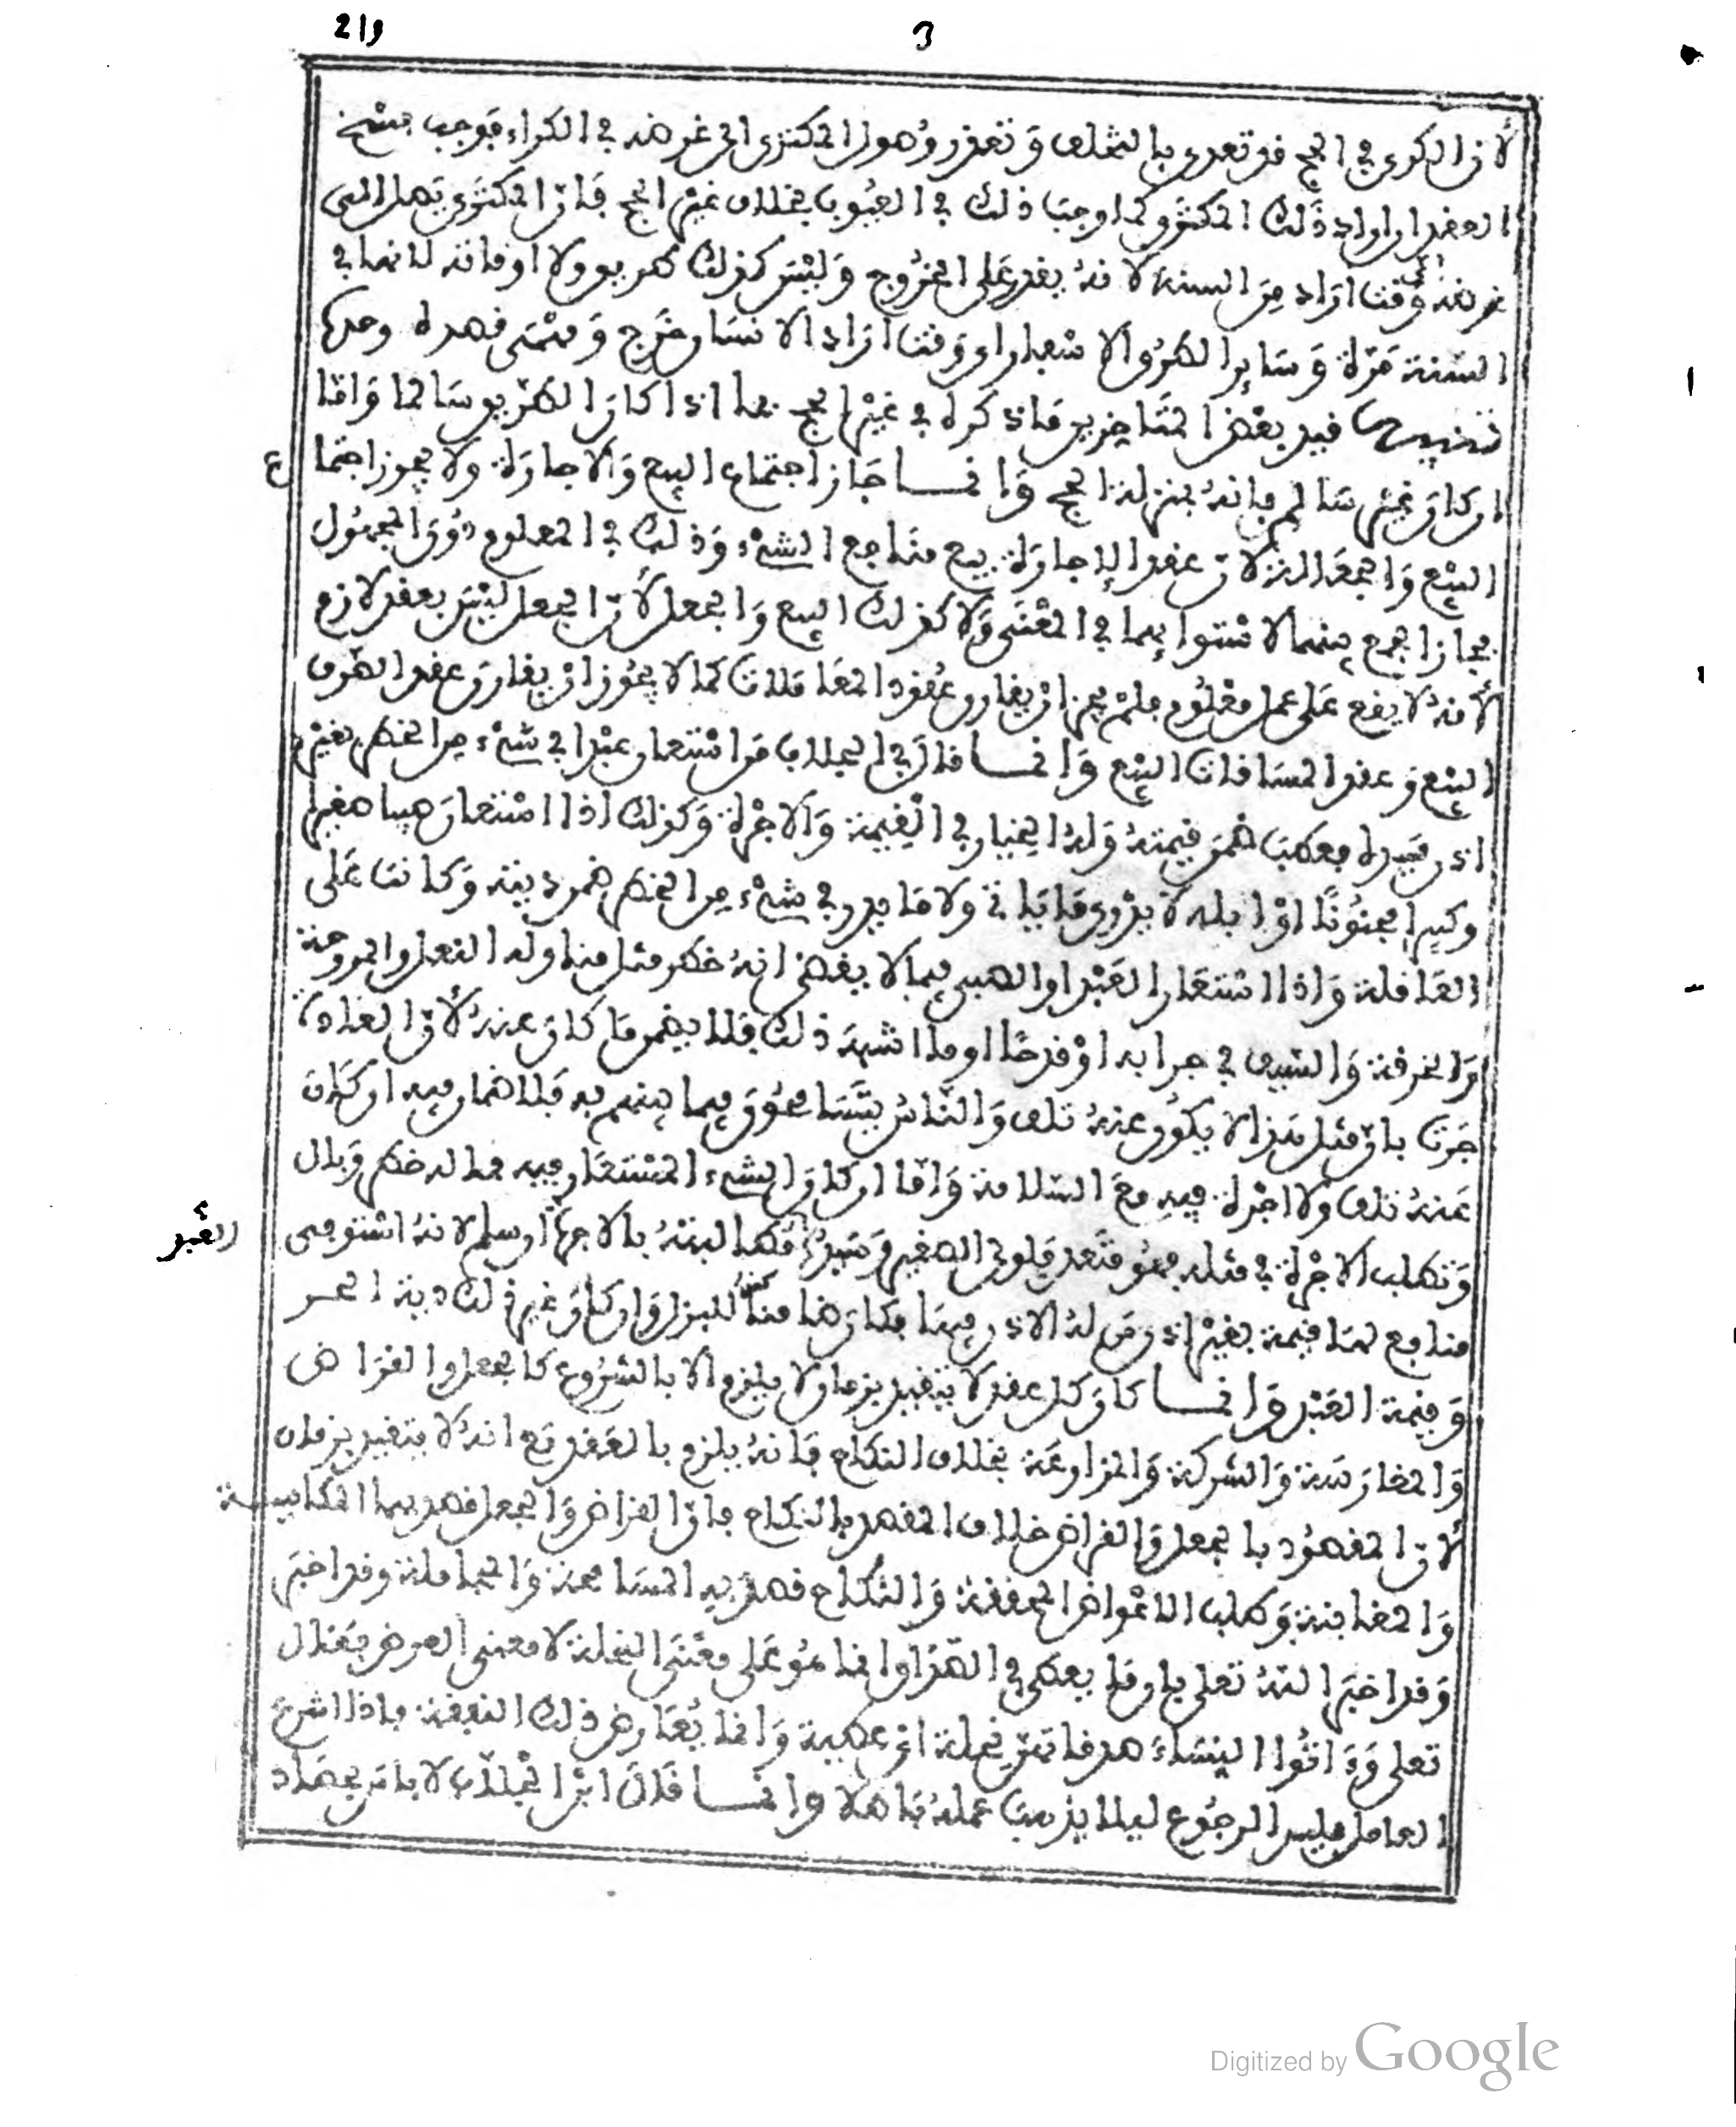 219 3
لأن الكري في الحج قد تعدى بالتخلف وتعذر وصول المكتري إلى غرضه في الكراء فوجب فسخ
العقد إن أراد ذلك المكتري كما وجب ذلك في العيوب بخلاف غير الحج فإن المكتري يصل إلى
غرضه أي وقت أراد من السنة لأنه يقدر على الخروج وليس كذلك طريق ولا أوقاته لأنها في
السنة مرة وسائر الطرق والأسفار أي وقت أراد الإنسان خرج ومتى قصد وحدها
تنبيه قيد بعض المتأخرين ما ذكره في غير الحج بما إذا كان الطريق سالما وأما
إن كان غير سالم فإنه بمنزلة الحج وإنما جاز اجتماع البيع والإجارة ولا يجوز اجتما
ع
البيع والجعل لأن عقد الإجارة بيع منافع الشيء وذلك في المعلوم دون المجهول
فجاز الجمع بينهما لاستوائهما في المعنى ولا كذلك البيع والجعل لأن الجعل ليس بعقد لازم
لأنه لا يقع على عمل معلوم فلم يجز أن يقارن عقود المعاملات كما لا يجوز أن يقارن عقد الصرف
البيع وعقد المساقات البيع وإنما قال في الجلاب من استعان عبدا في شيء من الخطر بغير
إذن سيده فعطب ضمن قيمته وله الخيار في القيمة والأجرة وكذلك إذا استعان صبيا صغيرا
وكبيرا مجنونا أو أبله لا يدري ما يأتي ولا ما يذر في شيء من الخطر ضمن ديته وكانت على
العاقلة وإذا استعان العبد أو الصبي فيما لا يقضى أنه خطر مثل مناولة النعل والمروحة
والخرقة والسيف في جرابه أو قدحا أو ما أشبه ذلك فلا يضمن ما كان عنده لأن العادة
جرت بأن مثل هذا لا يكون عنده تلف والناس يتسامحون فيما بينهم به فلا ضمان فيه إن كان
عنده تلف ولا أجرة فيه مع السلامة وأما إن كان الشيء المستعان فيه مما له خطر وبال
وتطلب الأجرة في مثله فهو متعد فلولي الصغير وسيد مطالبته بالأجرة إن سلم لأنه استوفى
العبد
منافع لها قيمة بغير إذن من له الإذن فيها فكان ضامنا لذلك وإن كان غير ذلك دية الحر
وقيمة العبد وإنما كان كل عقد لا يتقيد بزمان لا يلزم إلا بالشروع كالجعل والقراض
والمغارسة والشركة والمزارعة بخلاف النكاح فإنه يلزم بالعقد مع أنه لا يتقيد بزمان
لأن المقصود بالجعل والقراض خلاف المقصد بالنكاح فإن القراض والجعل قصد بهما المكايسة
والمغابنة وطلب الأعواض المحققة والنكاح قصد به المسامحة والمجاملة وقد أخبر
وقد أخبر الله تعالى بأن ما يعطى في الصداق إنما هو على معنى النحلة لا معنى العوض فقال
تعالى وءاتوا النساء صدقاتهن نحلة أي عطية وإنما يعارض ذلك النفقة فإذا شرع
العامل فليس الرجوع ليلا يذهب عمله باطلا وإنما قال ابن الجلاب لا بأس بحصاد
Digitized by Google